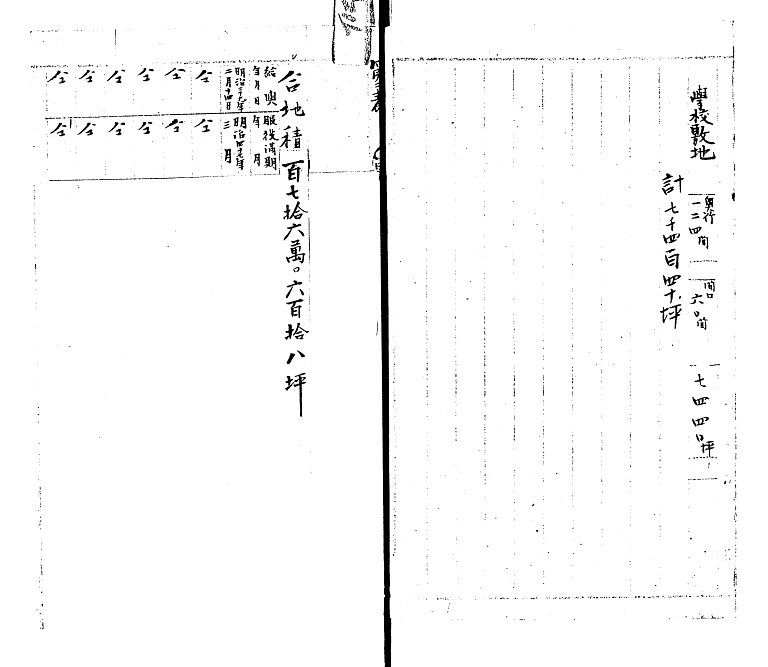 學校敷地
奧行
一二四間
間口
六〇間
七四四〇坪
計七千四百四十坪
合地積百七拾六萬〇六百拾八坪
給與
年月日
服役滿期
年月
明治三十七年
二月十四日
明治四十五年
三月
仝 仝 仝 仝 仝 仝
仝 仝 仝 仝 仝 仝